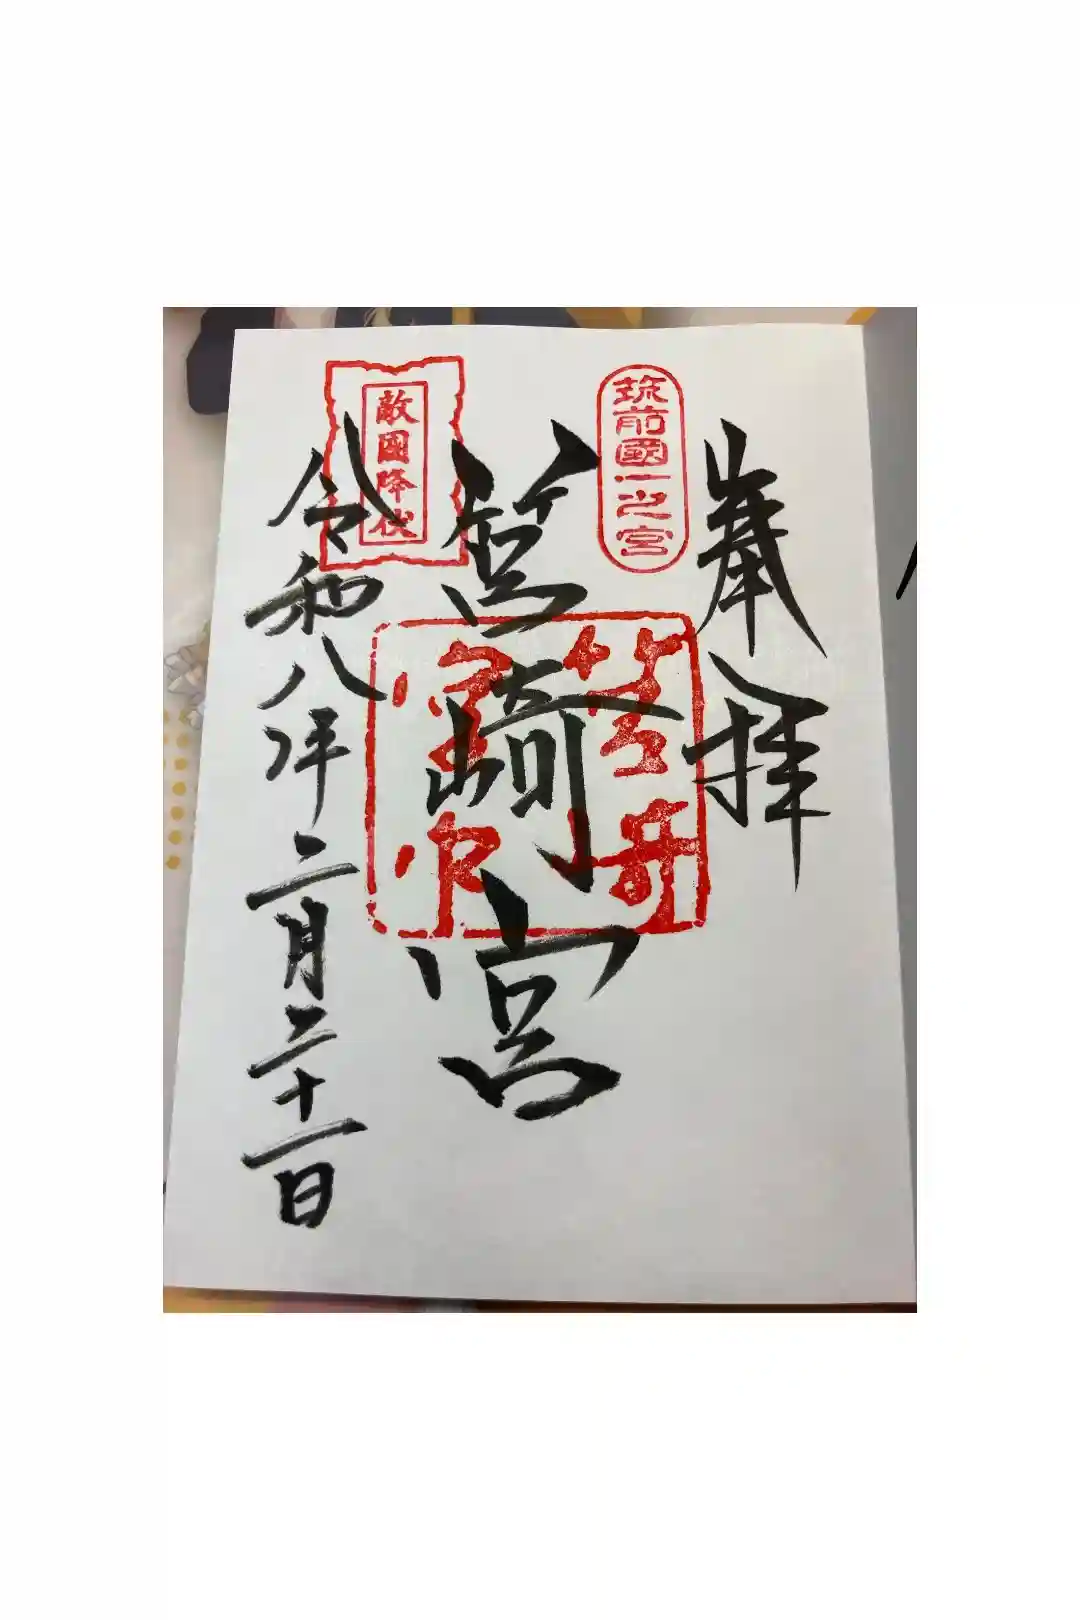 奉拝
筑前國一之宮
筥崎宮
敵國降伏
令和八年二月二十一日